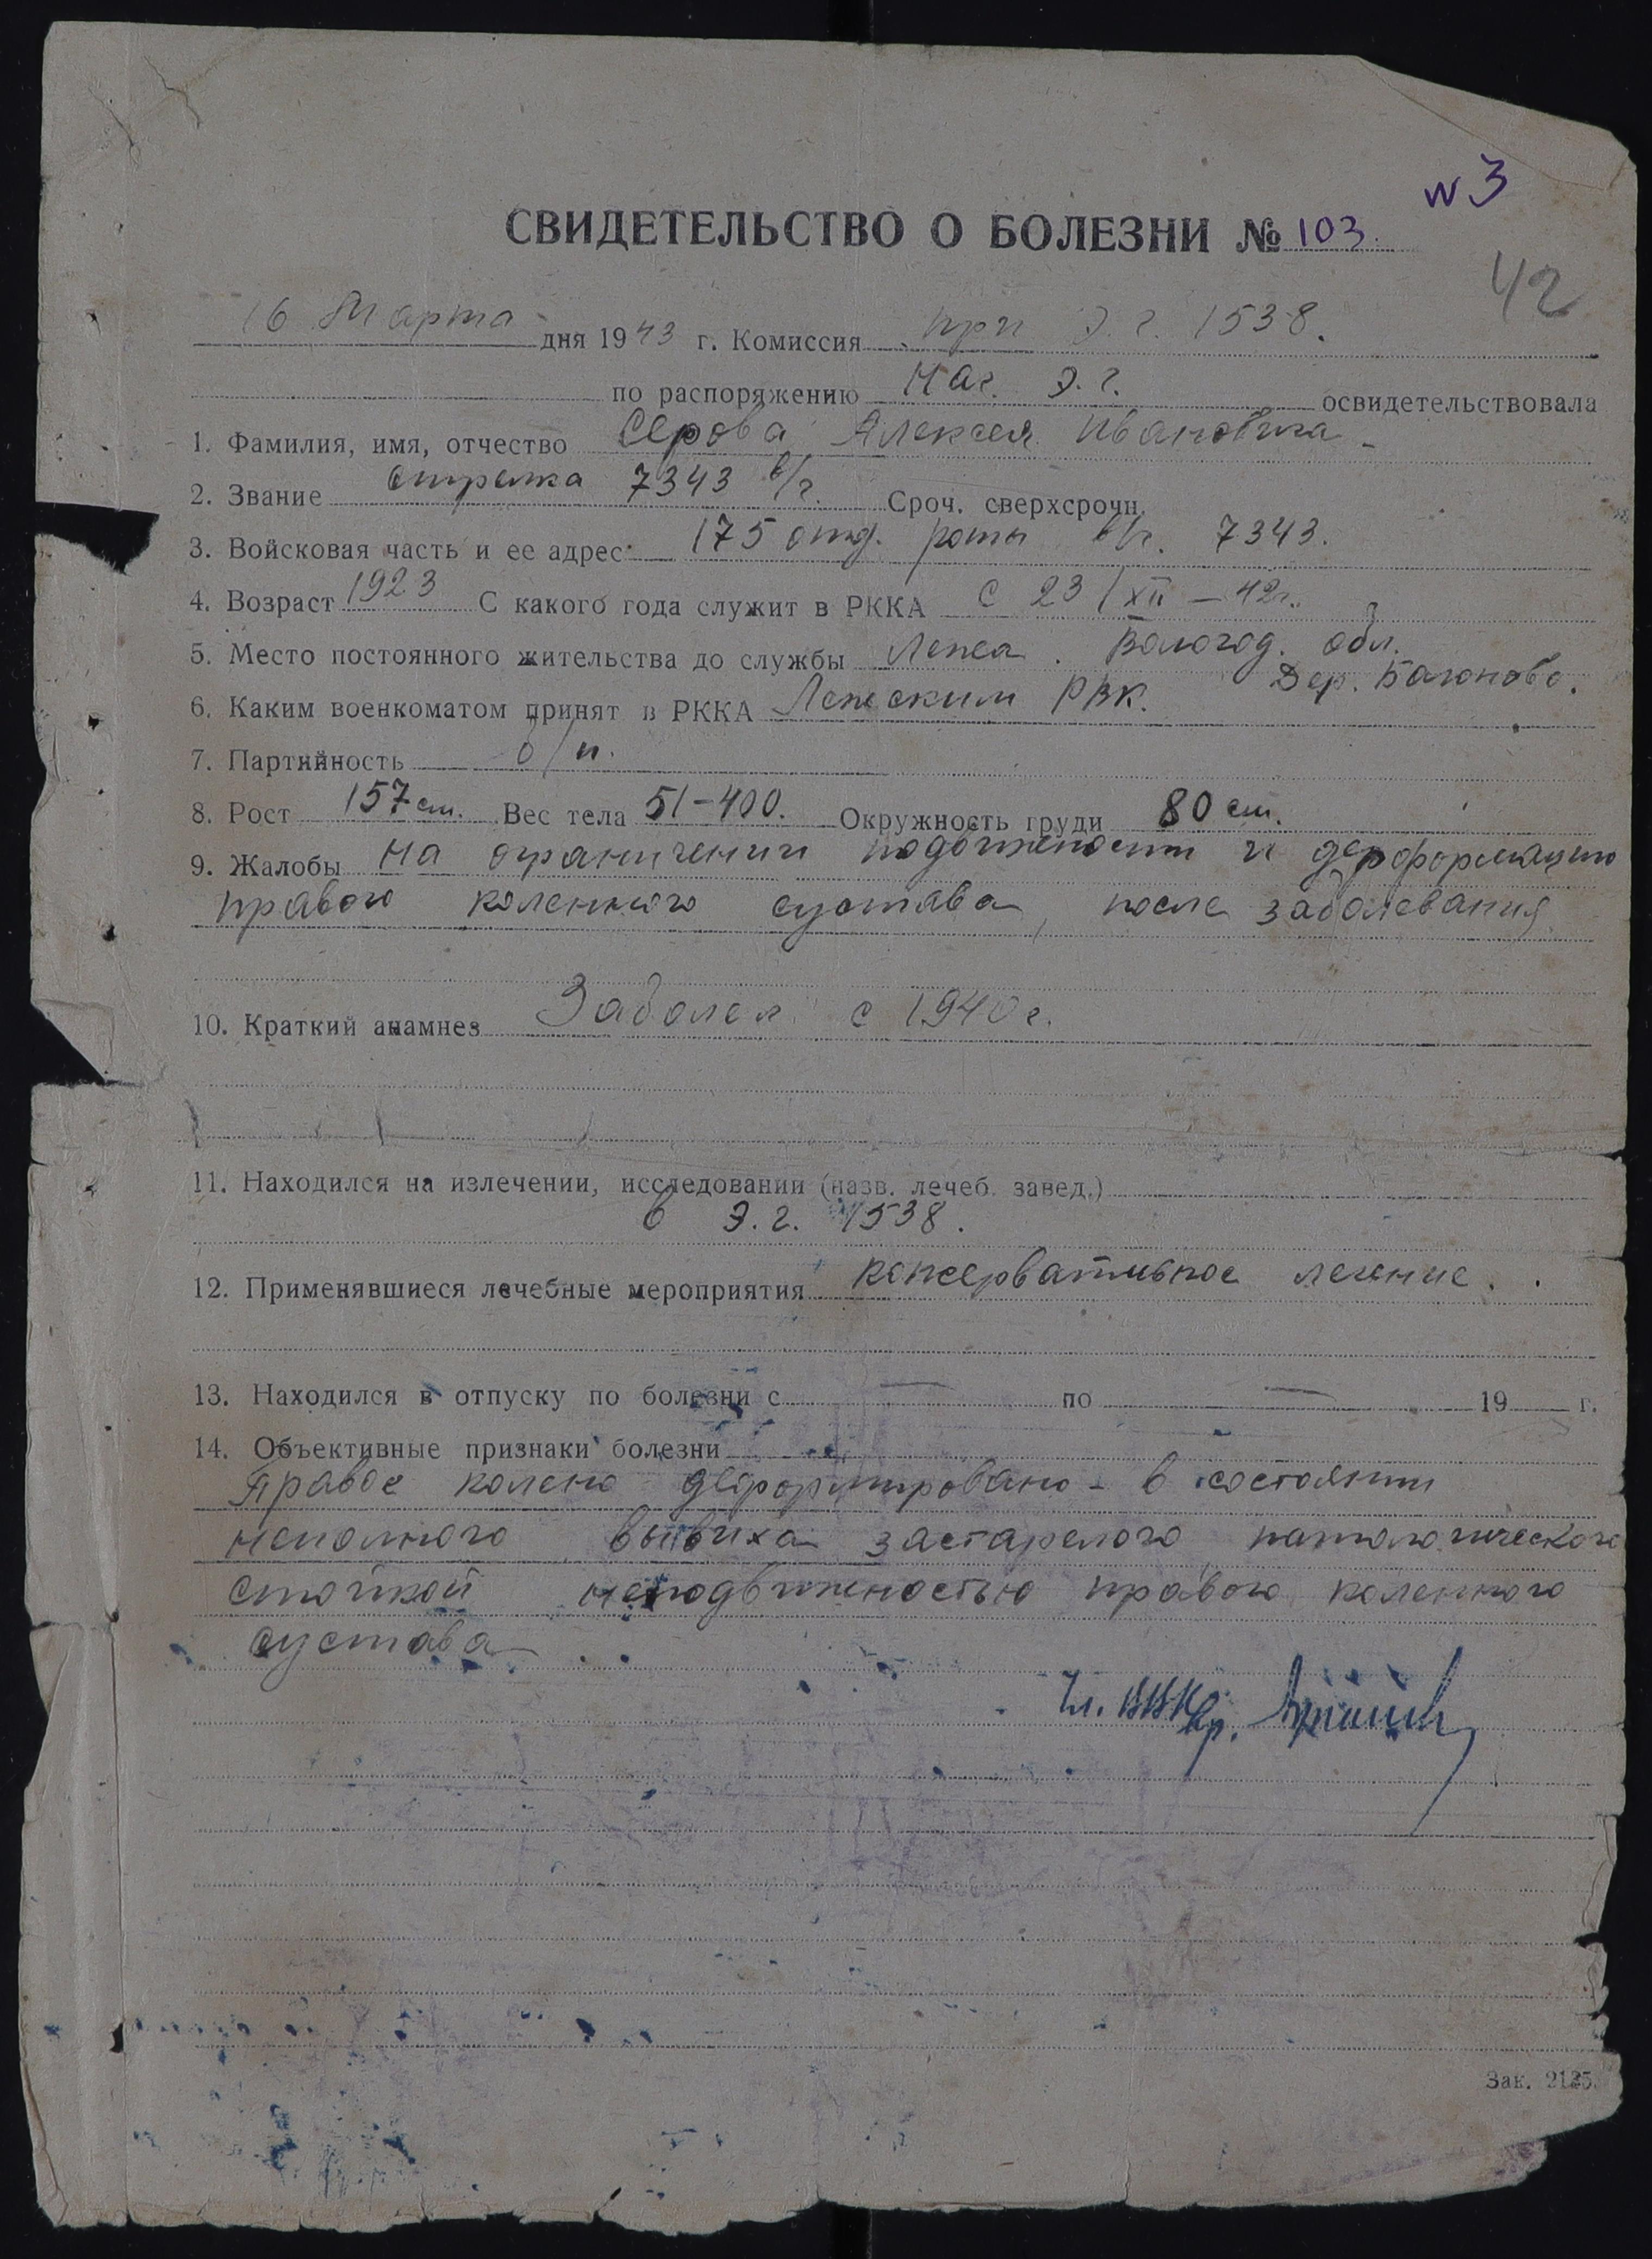 N 3
СВИДЕТЕЛЬСТВО О БОЛЕЗНИ № 103.
42
16 Марта дня 1943 г. Комиссия при Э. г. 1538.
по распоряжению Нач. Э. г. освидетельствовала
1. Фамилия, имя, отчество Серова Алексея Ивановича
2. Звание стрелка 7343 в/ч. Сроч. сверхсрочн.
3. Войсковая часть и ее адрес 175 отд. роты в/ч. 7343.
4. Возраст 1923 С какого года служит в РККА с 23/XII – 42г.
5. Место постоянного жительства до службы Лежа. Вологод. обл.
Дер.
6. Каким военкоматом принят в РККА Лежским РВК.
7. Партийность б/п.
8. Рост 157 см. Вес тела 51-400. Окружность груди 80 см.
9. Жалобы на ограничении подвижности и деформацию
правого коленного сустава, после заболевания
10. Краткий анамнез Заболел с 1940 г.
11. Находился на излечении, исследовании (назв. лечеб. завед.)
в Э. г. 1538.
12. Применявшиеся лечебные мероприятия консервативное лечение.
13. Находился в отпуску по болезни с — по — 19 г.
14. Объективные признаки болезни
Правое колено деформировано - в состоянии
неполного вывиха застарелого патологического
стойкой неподвижностью правого коленного
сустава
Чл. ВВК вр.
Зак. 2125.